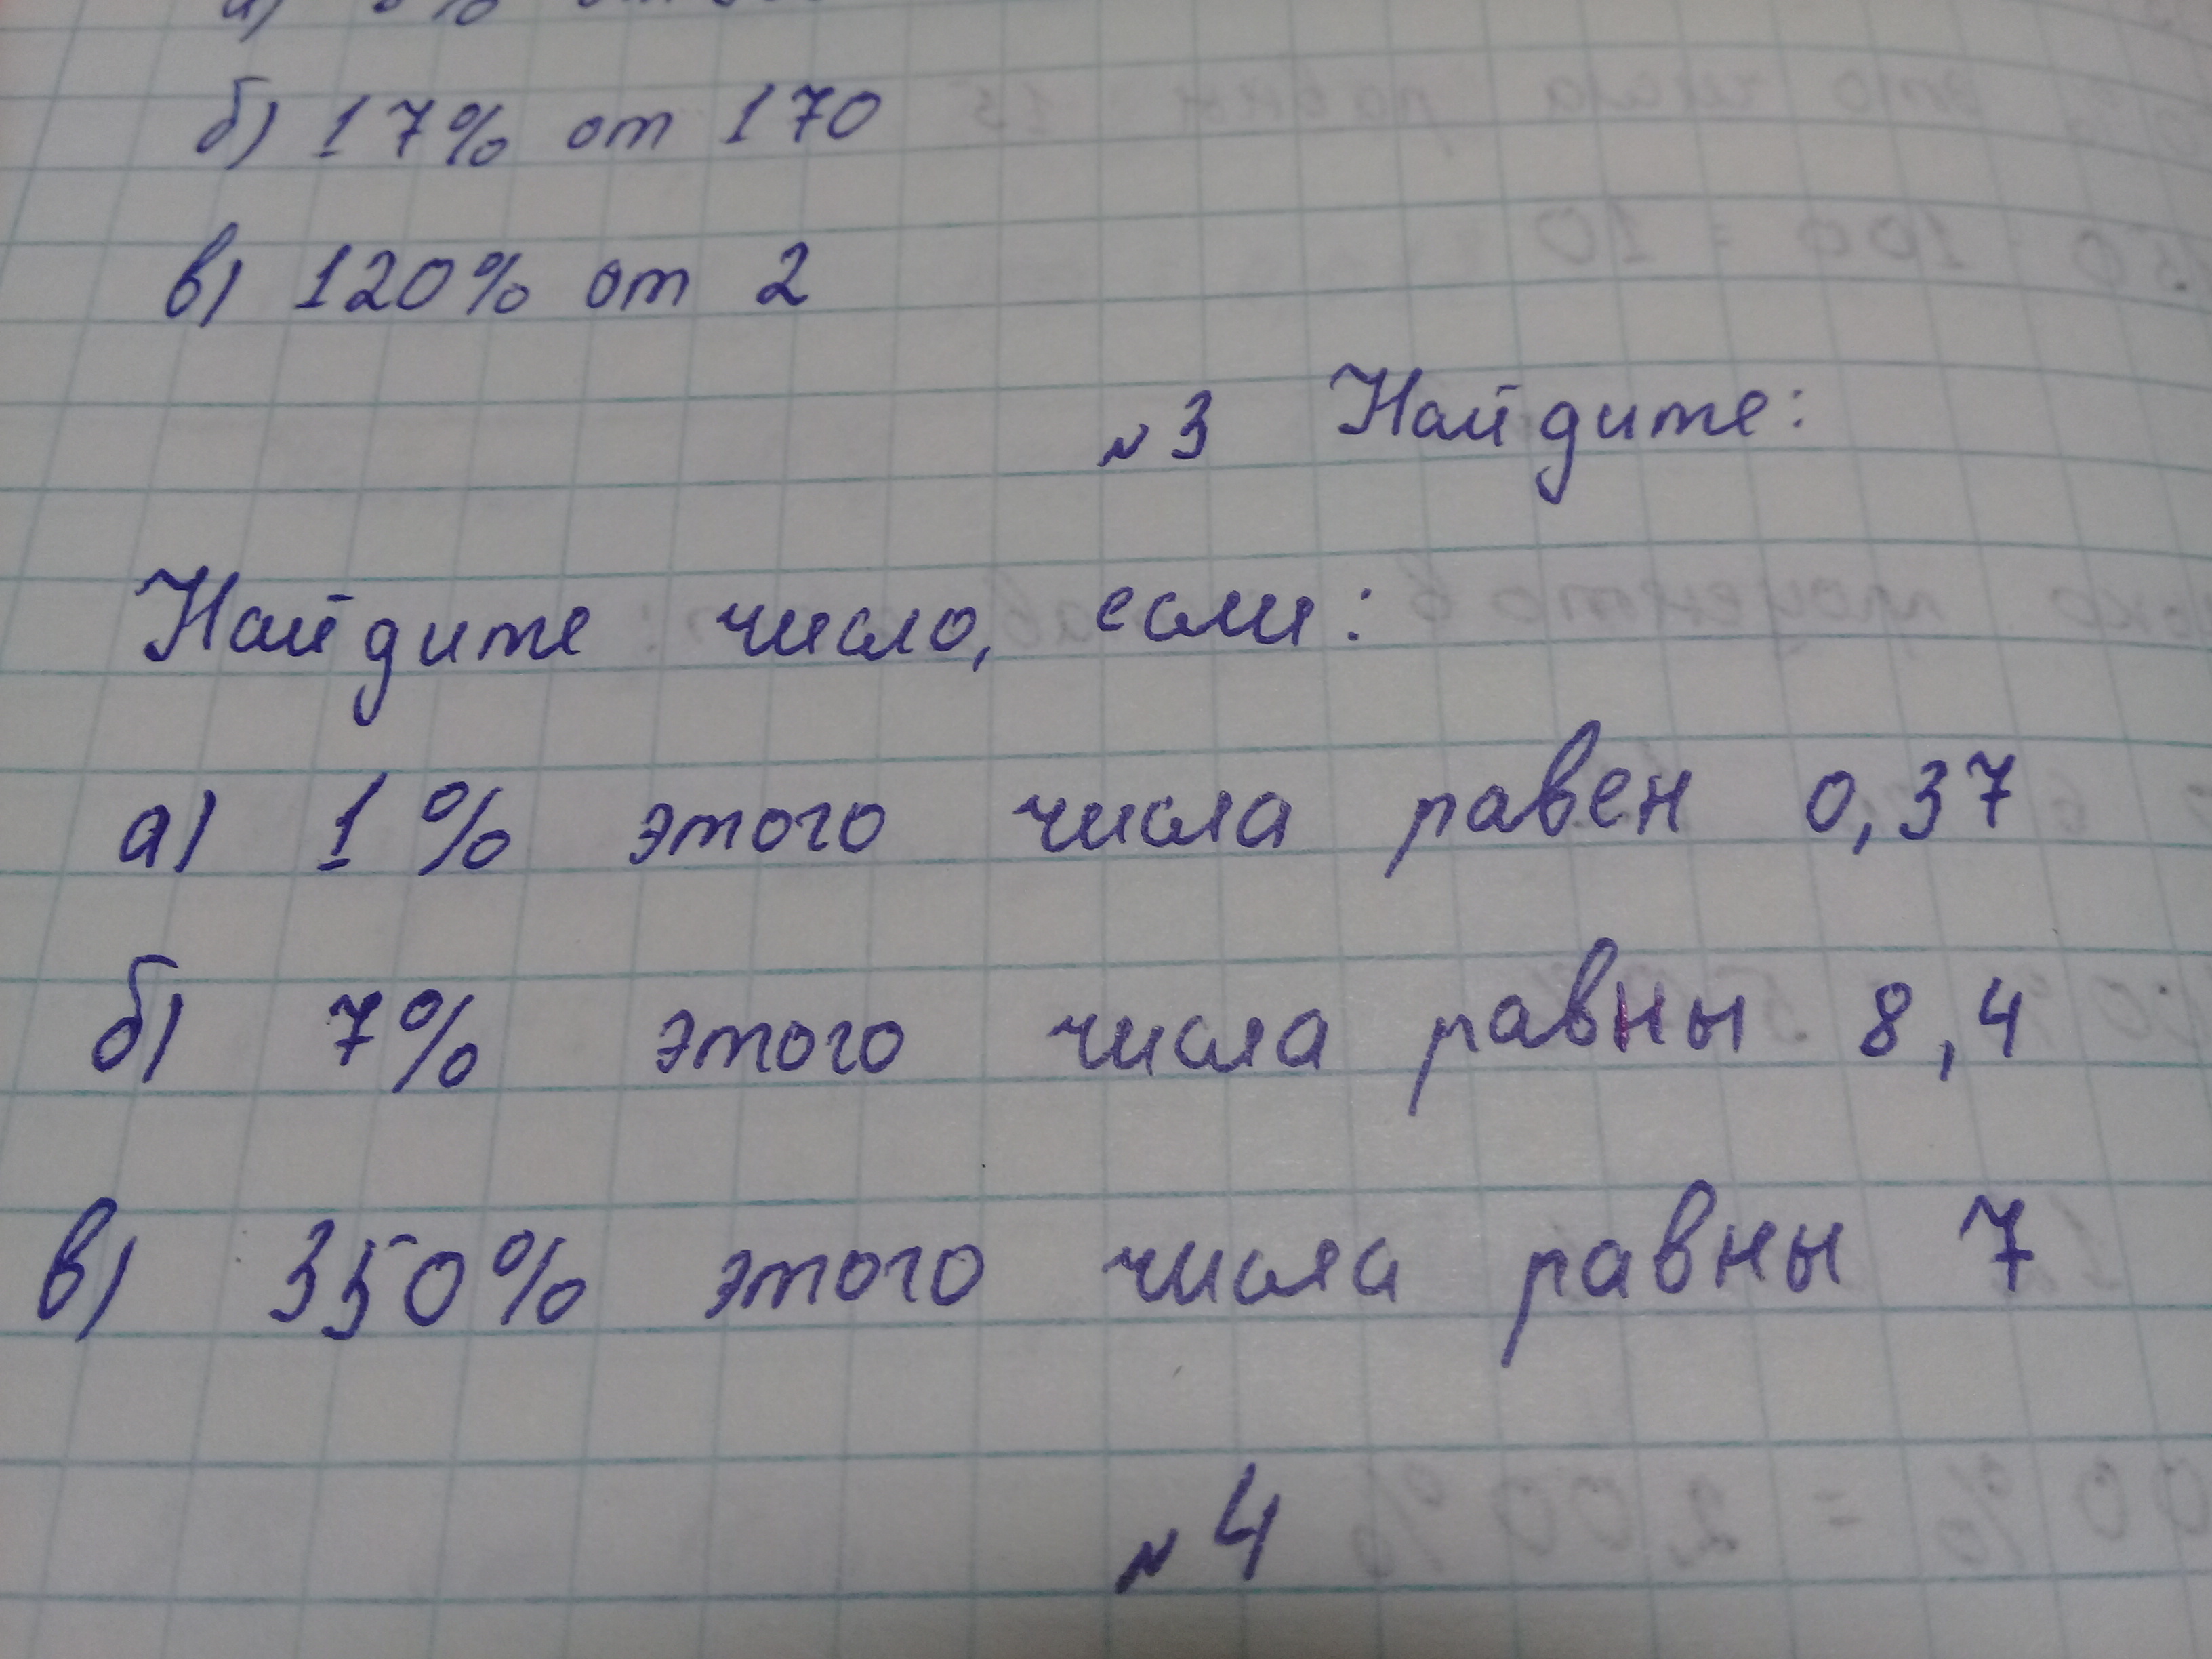 б) 17% от 170
в) 120% от 2
№3 Найдите:
Найдите число, если:
а) 1% этого числа равен 0,37
б) 7% этого числа равны 8,4
в) 350% этого числа равны 7
№4